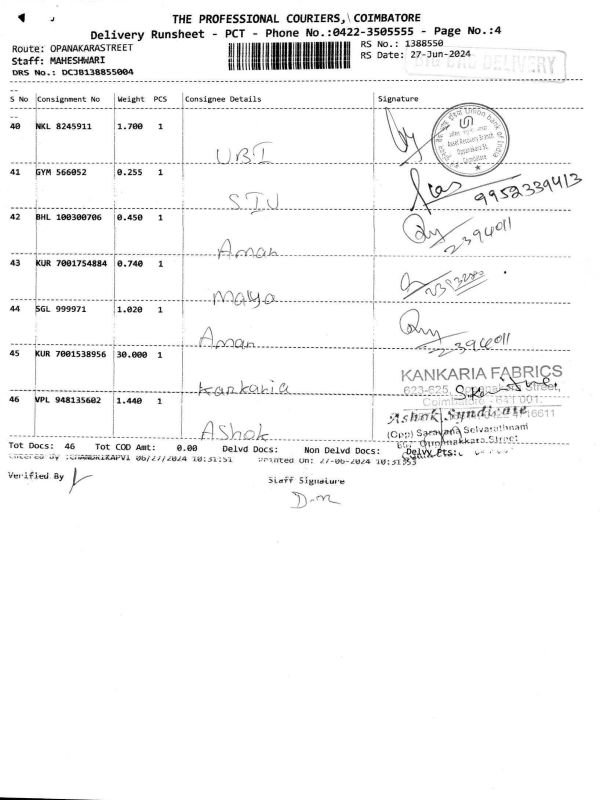 THE PROFESSIONAL COURIERS, COIMBATORE
Delivery Runsheet - PCT - Phone No.:0422-3505555 - Page No.:4
Route: OPANAKARASTREET
RS No.: 1388550
Staff: MAHESHWARI
RS Date: 27-Jun-2024
DRS No.: DCJB138855004
DELIVERY
S No Consignment No Weight PCS Consignee Details Signature
40 NKL 8245911 1.700 1
UBI
Union bank of India
Asset Recovery Branch
Oppanakara St.
Coimbatore
41 GYM 566052 0.255 1
SIU
9952339413
42 BHL 100300706 0.450 1
Aman
2394011
43 KUR 7001754884 0.740 1
Malya
44 SGL 999971 1.020 1
Aman
2394011
45 KUR 7001538956 30.000 1
Kankaria
KANKARIA FABRICS
623-625, Street,
Coimbatore - 641 001.
46 VPL 948135602 1.440 1
Ashok
Ashok Syndicate
(Opp) Saravana Selvarathnam
Street
Tot Docs: 46 Tot COD Amt: 0.00 Delvd Docs: Non Delvd Docs: Delvy Pts:
Entered By :CHANDRIKAPV1 06/27/2024 10:31:51 Printed On: 27-06-2024 10:31:53
Verified By
Staff Signature